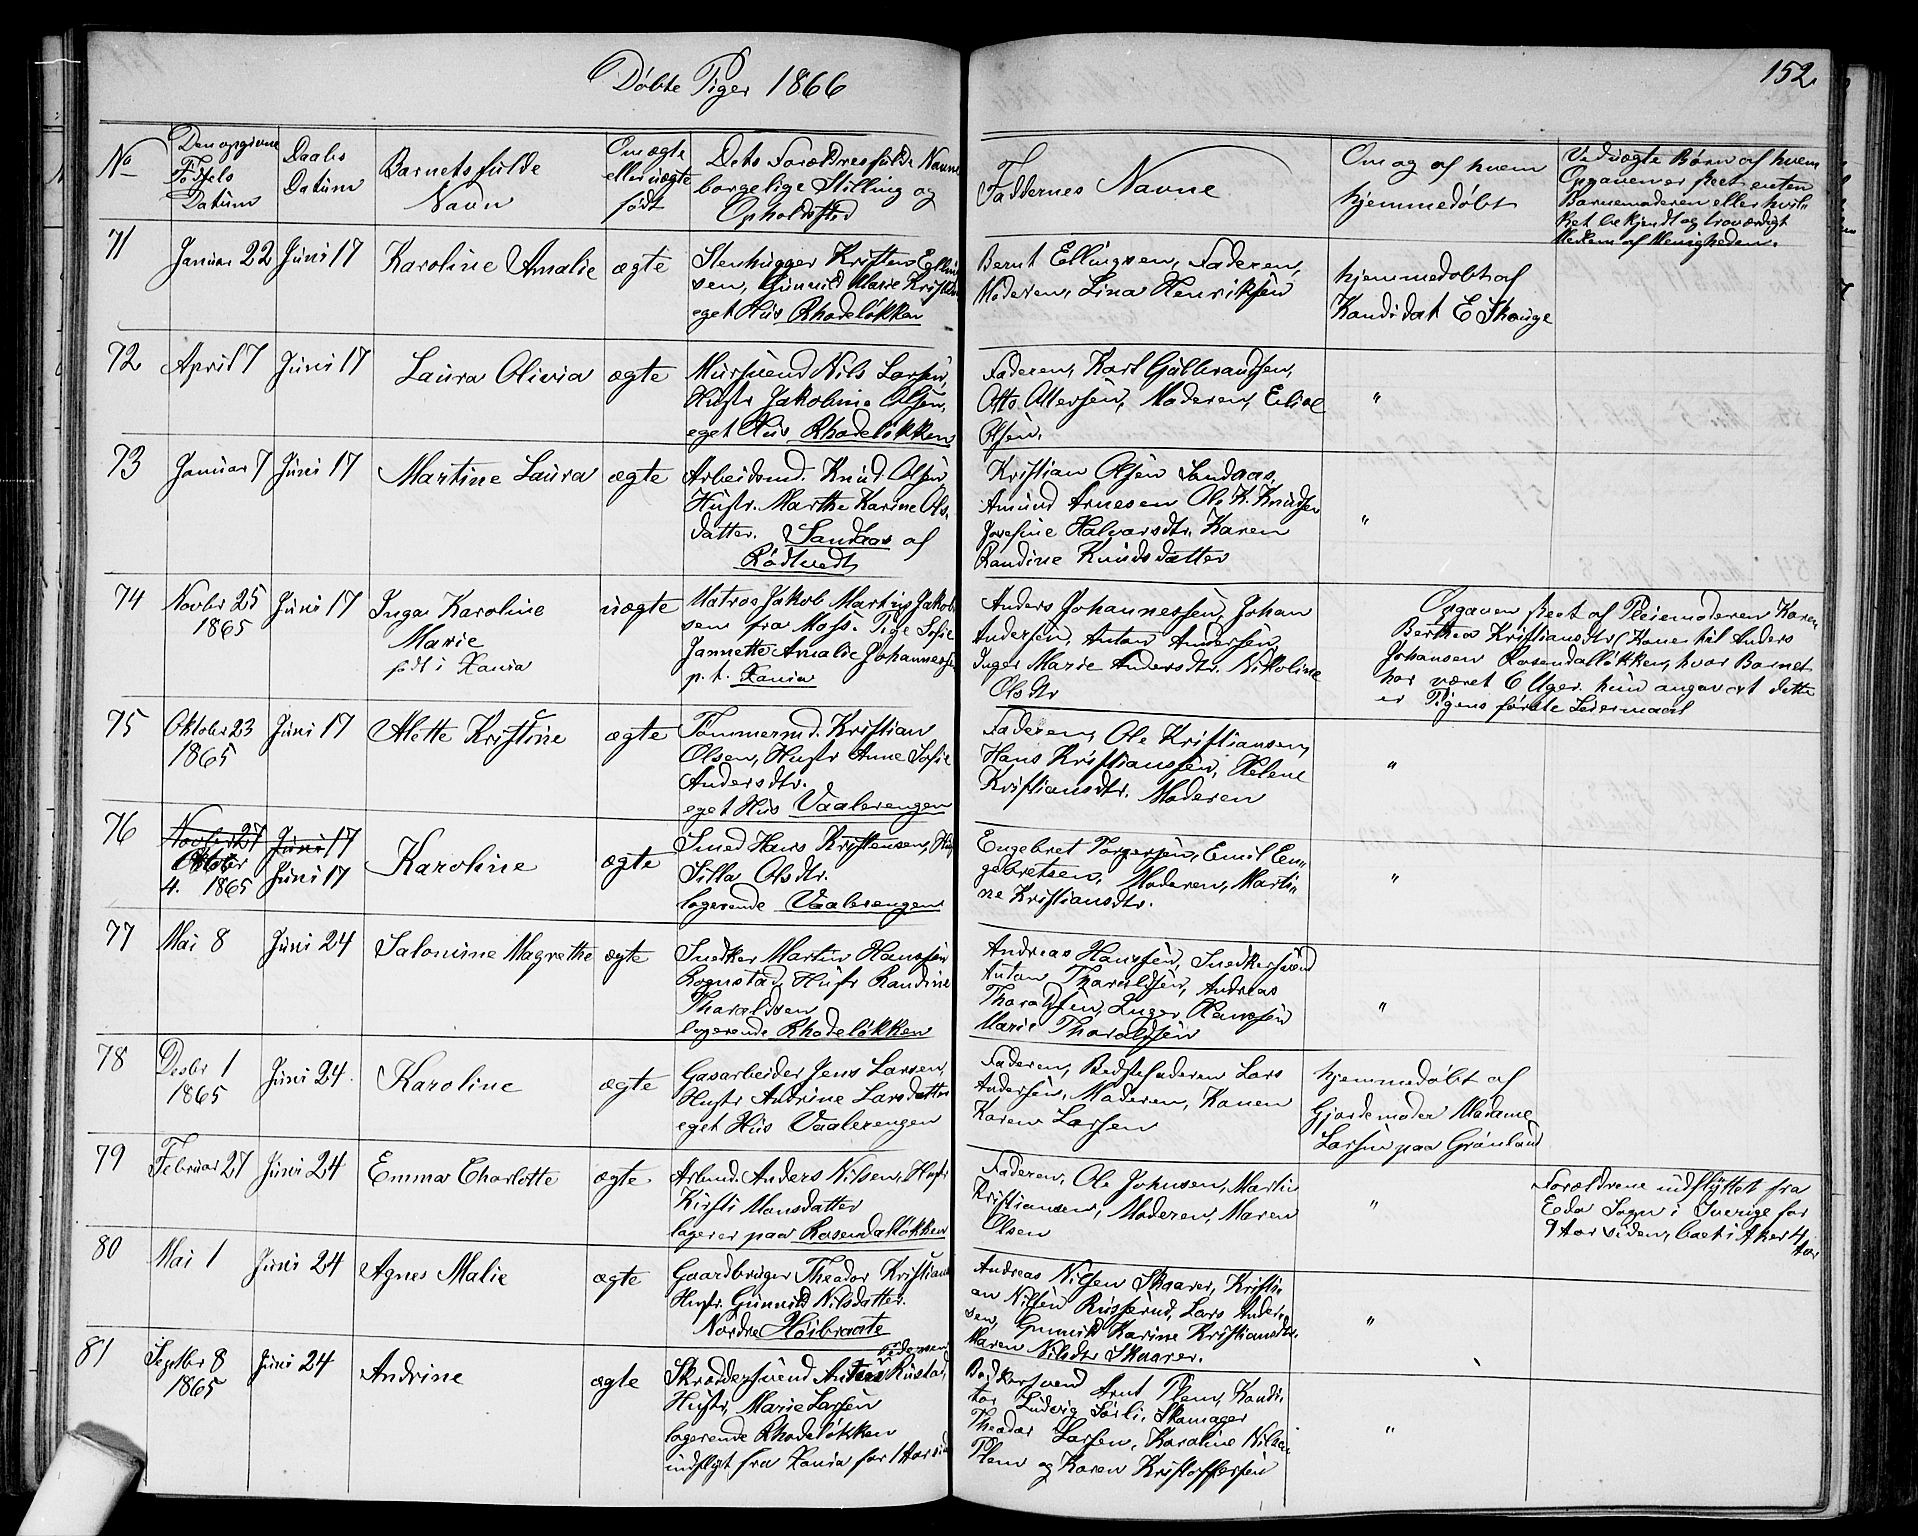 Døbte Piger 1866
152
No
Den opgivne
Fødsels
Datum
Daabs
Datum
Barnets fulde
Navn
Om ægte
eller uægte
født
Dets Forældres fulde Navne
borgelige Stilling og
Opholdssted
Faddernes Navne
Om og af hvem
hjemmedøbt
Ved uægte Børn af hvem
Opgaven er skeet enten
Barnemoderen eller hvil-
ket bekjendt og troværdigt
Medlem af Menigheden.
71
Januar 22
Juni 17
Karoline Amalie
ægte
Stenhugger Kristen Elling
sen, Gunnild Marie Kristen
eget Hus Rhodeløkken
Bernt Ellingsen, Faderen,
Moderen, Lina Henriksen
hjemmedøbt af
Kandidat E Skauge
72
April 7
Juni 17
Laura Olivia
ægte
Mursvend Nils Larsen,
Hustr Jakobine Olsen,
eget Hus Rhodeløkken
Faderen, Karl Gulbrandsen,
Otto Ottersen, Moderen,
Olsen.
"
73
Januar 7
Juni 17
Martine Laura
ægte
Arbeidsmd. Knud Olsen,
Hustr. Marthe Karine Ols-
datter. Sandaas af
Rødtvedt
Kristian Olsen Sandaas,
Amund Arnesen Ole K. Knudsen
Josefine Halvarsdtr. Karen
Randine Knudsdatter
"
74
Novbr 25
1865
Juni 17
Inga Karoline
Marie
født i Xania
uægte
Matros Jakob Martin Jakob
sen fra Moss. Pige Sofie
Jannette Amalie Johannessen
p. t. Xania
Anders Johannessen, Johan
Andersen, Anton Andersen,
Inger Marie Andersdtr. Nikoline
Olsdtr
Opgaven skeet af Pleiemoderen Karen
Berthea Kristiansdtr (Kone til Anders
Johansen Rosendalløkken, hvor Barnet
har været 6 Uger. hun angav at dette
er Pigens første Leiermaal
75
Oktober 23
1865
Juni 17
Alette Kristine
ægte
Tømmermd. Kristian
Olsen, Hustr Anne Sofie
Andersdtr.
eget Hus Vaalerengen
Faderen, Ole Kristiansen,
Hans Kristianssen, Helene
Kristiansdtr. Moderen
"
76
Novbr 27
Oktober
4. 1865
Juni 17
Juni 17
Karoline
ægte
Smed Hans Kristensen, Hust
Silla Olsdtr.
logerende Vaalerengen
Engebret Torgersen, Emil En-
gebretsen, Moderen, Marti-
ne Kristiansdtr.
"
77
Mai 8
Juni 24
Salomine Magrethe
ægte
Snedker Martin Hanssen
Rognstad, Hustr Randine
Tharaldsen
logerende Rhodeløkken
Andreas Hanssen, Snedkersvend
Anton Tharaldsen, Andreas
Tharaldsen, Inger Hanssen
Marie Tharaldsen
"
78
Desbr 1
1865
Juni 24.
Karoline
ægte
Gasarbeider Jens Larsen,
Hustr Andrine Larsdatter
eget Hus Vaalerengen
Faderen, Bedstefaderen Lars
Andersen, Moderen, Konen
Karen Larsen
hjemmedøbt af
Gjordemoder Madame
Larsen paa Grønland
79
Februar 27
Juni 24
Emma Charlotte
ægte
Arbmd. Anders Nilsen, Hustr
Kirsti Monsdatter
logerer paa Rosendalløkken
Faderen, Ole Johnsen, Martin
Kristiansen, Moderen, Maren
Olsen
"
Forældrene indflyttet fra
Eda Sogn i Sverige for
9 Aar siden, boet i Aker 4
Aar
80
Mai 1
Juni 24
Agnes Malie
ægte
Gaardbruger Theador Kristians
Hustr. Gunnild Nilsdatter.
Nordre Høibraate
Andreas Nilsen Skaarer, Kristi-
an Nilsen Russerud, Lars Ander-
sen, Gunnild Karine Kristiansdtr.
Maren Nilsdtr Skaarer.
"
81
Septbr 8
1865
Juni 24
Andrine
ægte
Pedersen
Skræddersvend Anders Rustad,
Hustr, Marie Larsen
logerende Rhodeløkken
indflyt fra Xania for 1 Aar sid
Bødkersvend Arnt Plem, Kondi-
tor Ludvig Sørli, Skomager
Theador Larsen, Karoline Nilsen
Plem og Karen Kristoffersen
"